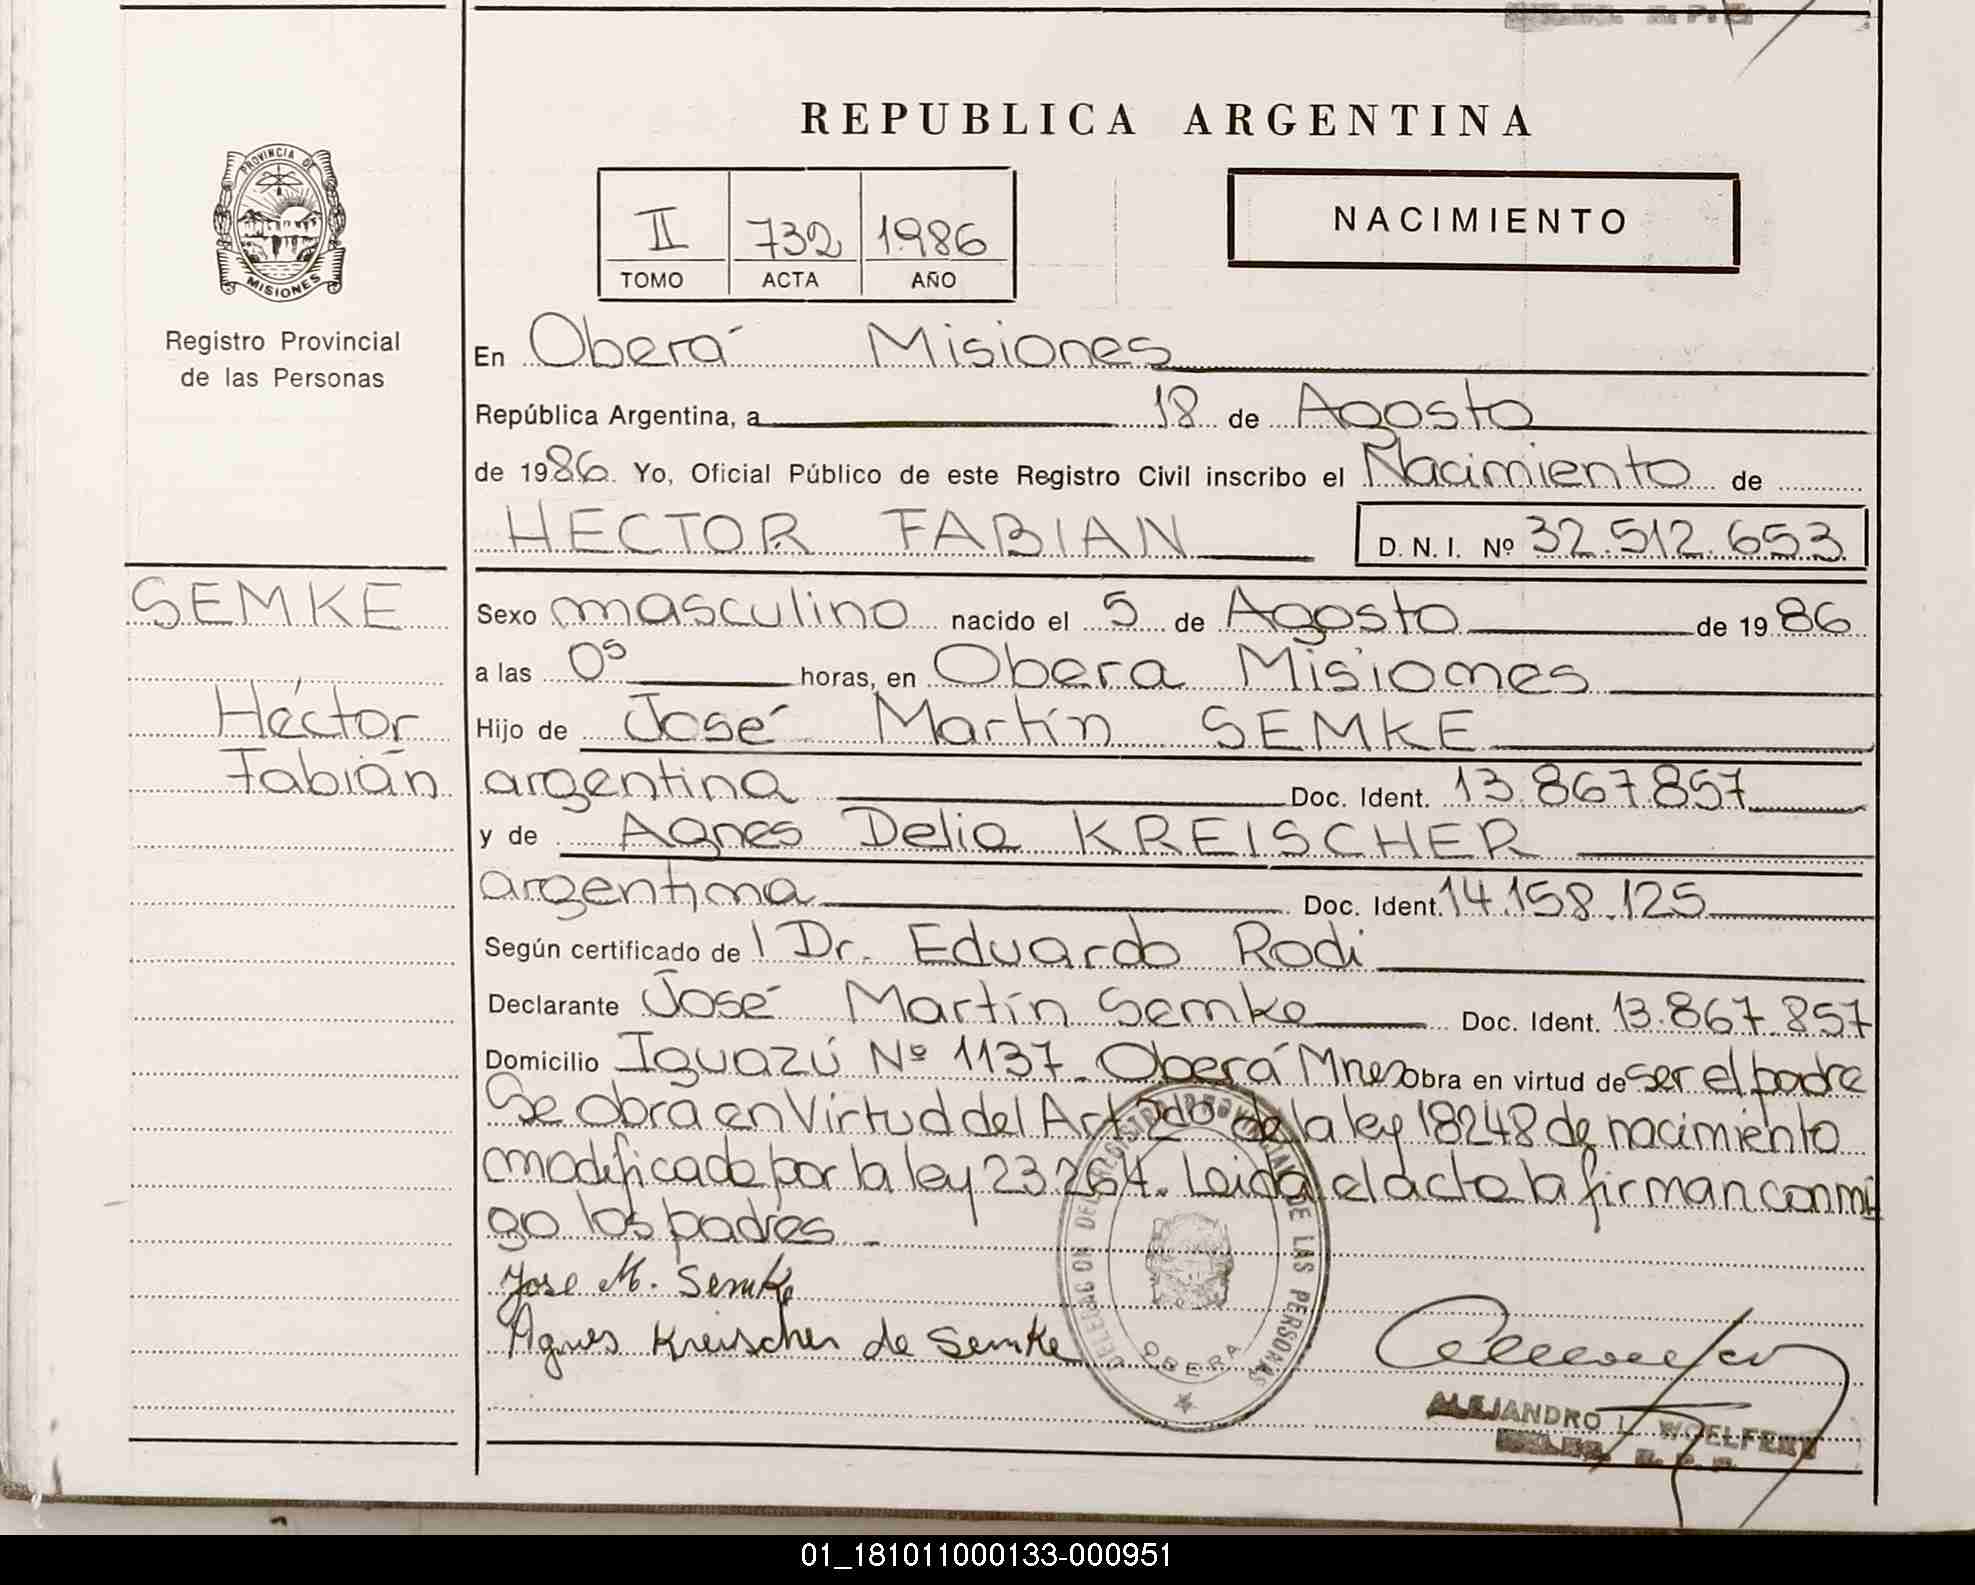 REPUBLICA ARGENTINA
PROVINCIA DE
MISIONES
Registro Provincial
de las Personas
II 732 1986
TOMO ACTA AÑO
NACIMIENTO
En Oberá Misiones
República Argentina, a 18 de Agosto
de 1986. Yo, Oficial Público de este Registro Civil inscribo el Nacimiento de
HECTOR FABIAN D. N. I. Nº 32.512.653
SEMKE
Héctor
Fabián
Sexo masculino nacido el 5 de Agosto de 1986
a las 0⁵ horas, en Obera Misiones
Hijo de José Martín SEMKE
argentina Doc. Ident. 13.867.857
y de Agnes Delia KREISCHER
argentina Doc. Ident. 14.158.125
Según certificado de l Dr. Eduardo Rodi
Declarante José Martín Semke Doc. Ident. 13.867.857
Domicilio Iguazú Nº 1137. Oberá Mnes Obra en virtud de ser el padre
Se obra en Virtud del Art 2do de la ley 18248 de nacimiento
modificado por la ley 23.264. Leida el acta la firman conmi
go los padres.
Jose M. Semke
Agnes Kreischer de Semke
DELEGACION DEL REGISTRO PROVINCIAL DE LAS PERSONAS
OBERA
ALEJANDRO L. WOELFERT
01_181011000133-000951